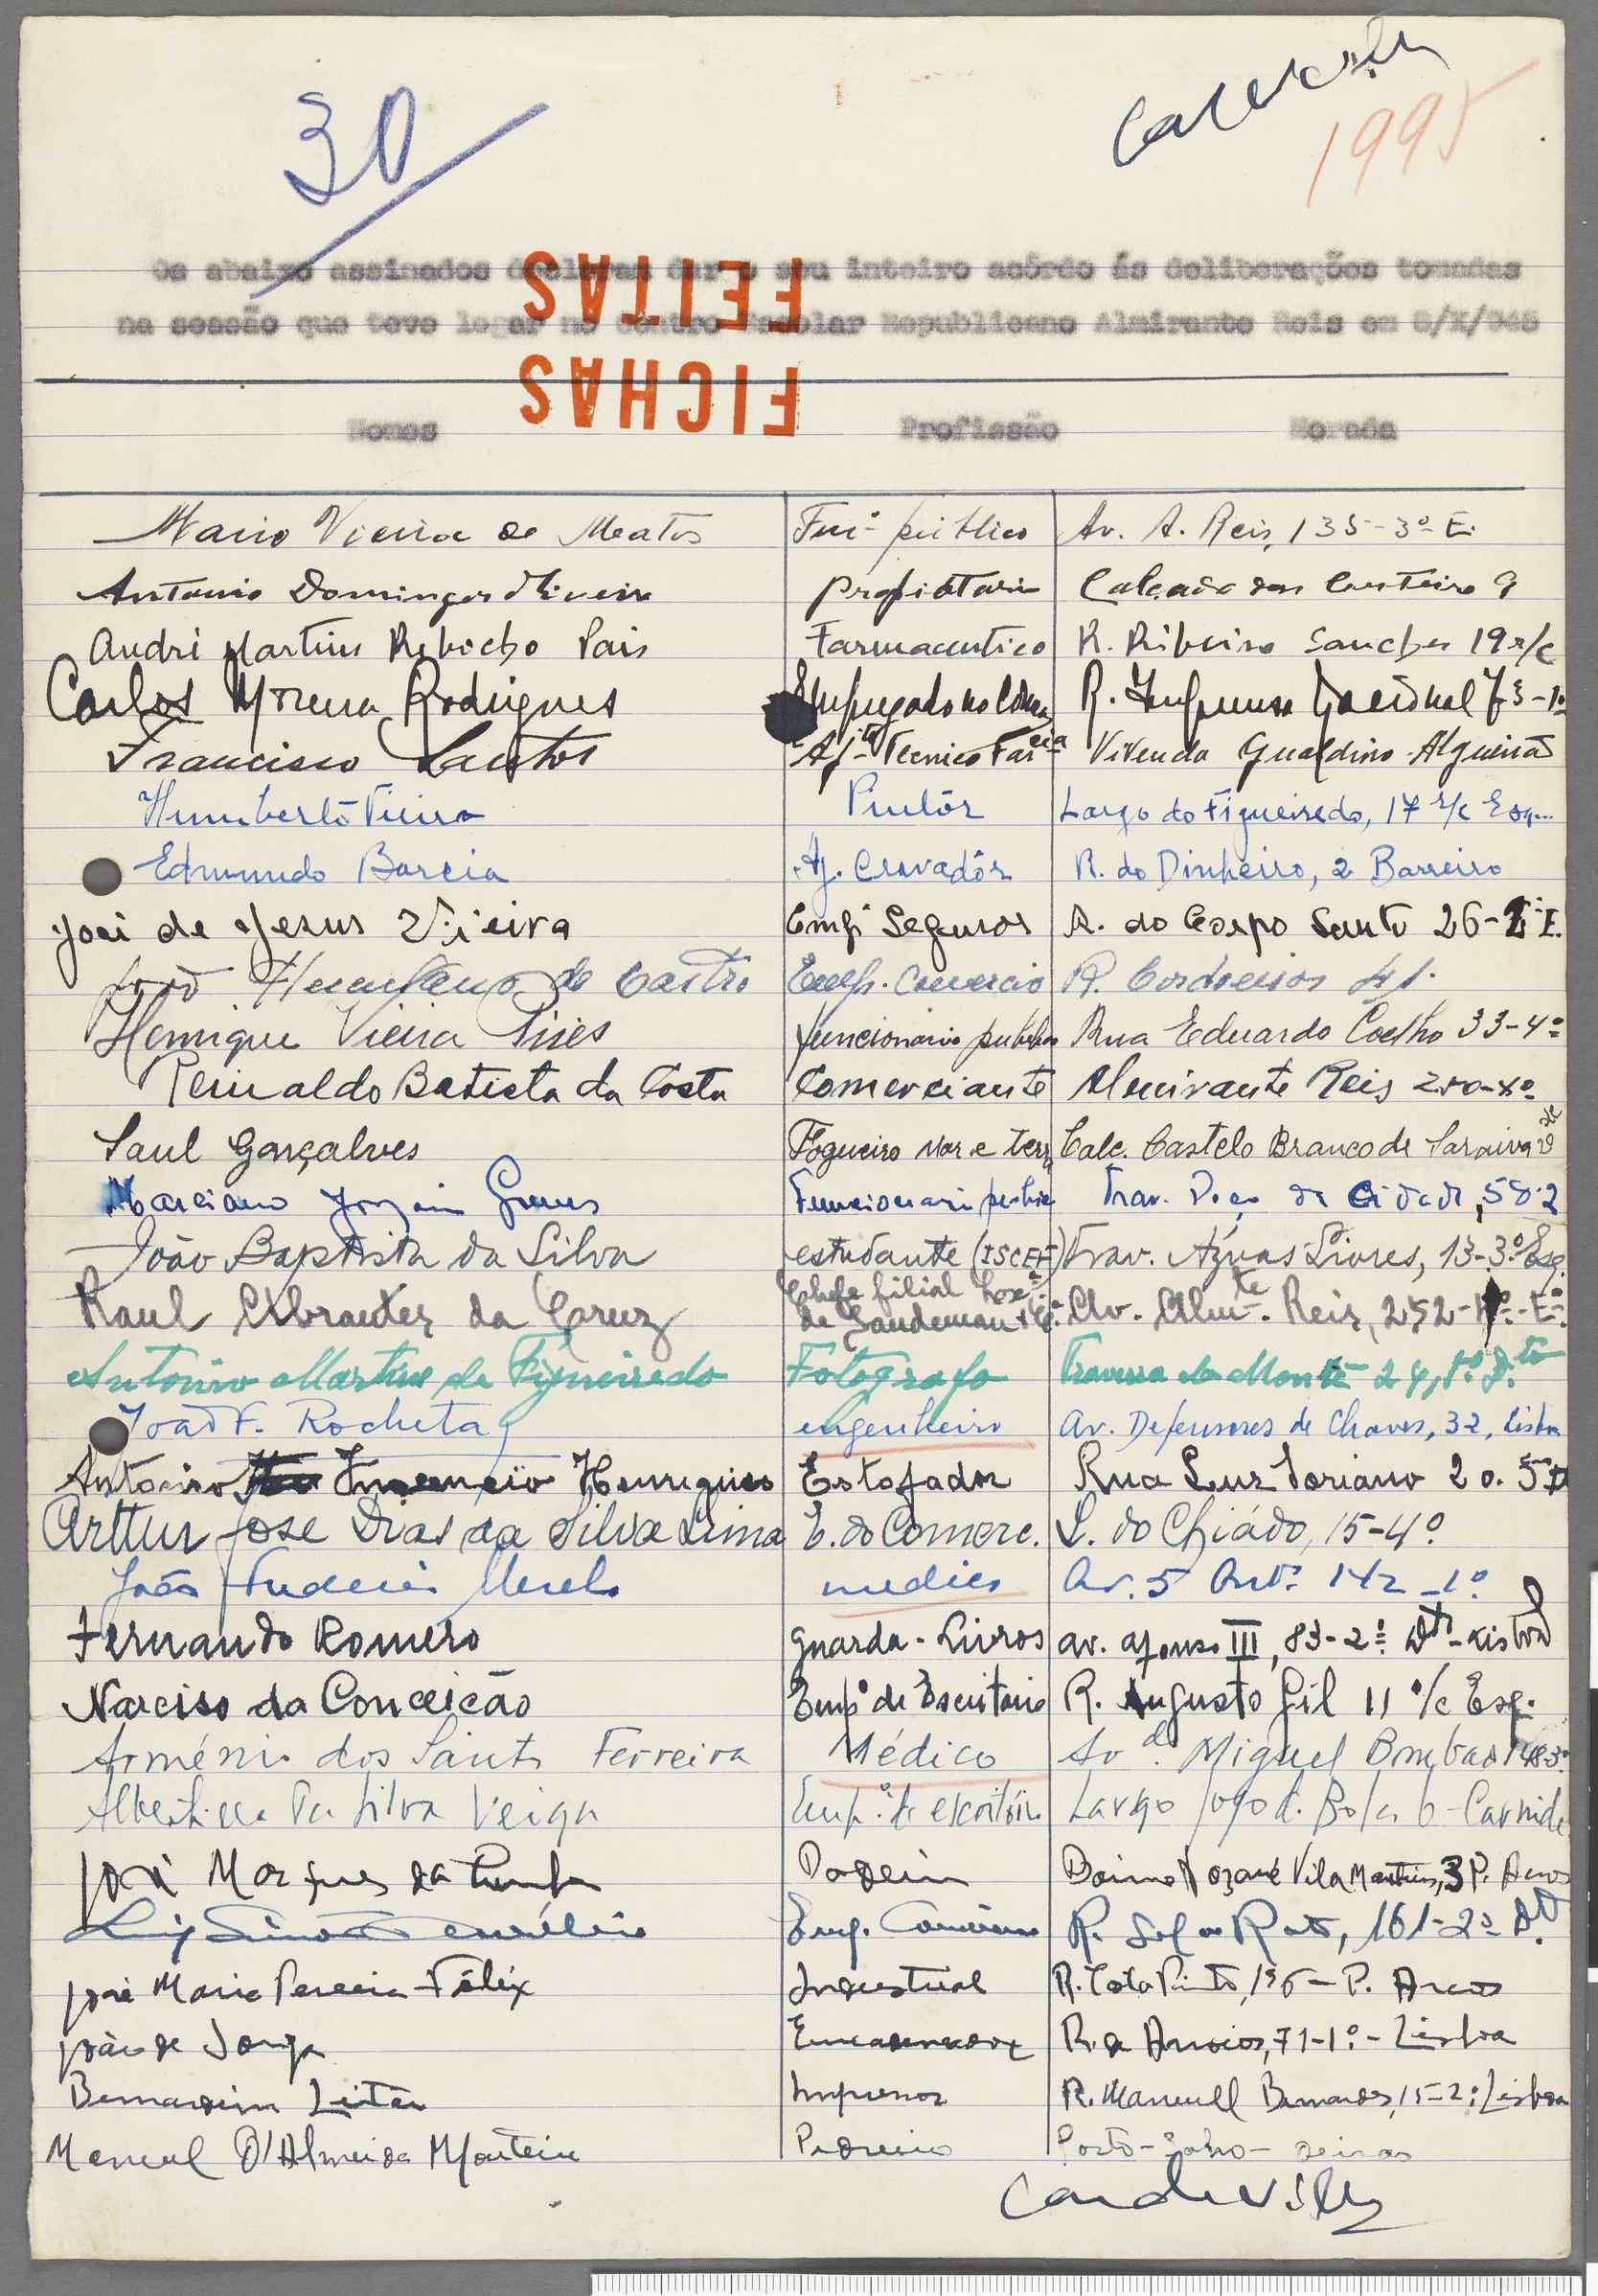 30
1995
Os abaixo assinados declaram dar o seu inteiro acôrdo ás deliberações tomadas
na sessão que teve logar no Centro Escolar Republicano Almirante Reis em 8/X/945
FICHAS
FEITAS
Nomes Profissão Morada
Mario Vieira de Matos Fui- público Av. A. Reis, 135-3º E.
Antonio Domingos Proprietario Calçada dos 9
André Martins Rebocho Pais Farmaceutico R. Ribeiro Sanches 19 r/c
Carlos Moreira Rodrigues Empregado no R. Imprensa Nacional 73-1º
Francisco Santos Ajte Tecnico Farcia Vivenda Gualdino-Algueirão
Humberto Vieira Pintôr Largo do Figueiredo, 17 r/c Esq.
Edmundo Barcia Aj. Cravadôr R. do Dinheiro, 2 Barreiro
José de Jesus Vieira Empº Seguros R. do Corpo Santo 26-
de Castro Emp. Comercio R. Cordoeiros 41.
Henrique Vieira Pires funcionario publico Rua Eduardo Coelho 33-4º
Reinaldo Batista da Costa Comerciante Almirante Reis
Saul Gonçalves Fogueiro Mar e terra Calc. Castelo Branco de Saraiva
Marciano Funcionario publico Trav. da Cidade, 58-2
João Baptista da Silva estudante (ISCEF) Trav. Águas Livres, 13-3º Esq.
Raul Abrantes da Cruz Chefe filial Lxª de Sandeman & Cª. Av. Almte. Reis, 252- º-Eº.
António Martins de Figueiredo Fotógrafo Travessa do Monte 24, 1º D.to
João F. Rocheta engenheiro Av. Defensores de Chaves, 32, Lisboa
Antonio Henriques Estofador Rua Luz Soriano 20. 5º
Arttur José Dias da Silva Lima E. do Comerc. L. do Chiádo, 15-4º
João médico Av. 5 Outº 142-1º
Fernando Romero guarda-Livros av. afonso III, 83-2º Dtº-Lisboa
Narciso da Conceição Empº de Escritório R. Augusto Gil 11 r/c Esq.
Arménio dos Santos Ferreira Médico Avda. Miguel Bombarda
da Silva Veiga Empº de escritório Largo Jogo d. Bola 6-Carnide
José Marques da Cunha Bairro Vila Martins, 3 P. Arcos
Luiz Emp. Comércio R. Sol ao Rato, 161-2º Dt.
José Maria Pereira Félix Industrial R. Costa Pinto, 136-P. Arcos
João de Sousa Encadernador R. de Arroios, 71-1º-Lisboa
Bernardim Leitão Impressor R. Manuell Bernardes, 15-2º Lisboa
Manuel D'Almeida Monteiro Pedreiro Porto-Salvo-Oeiras